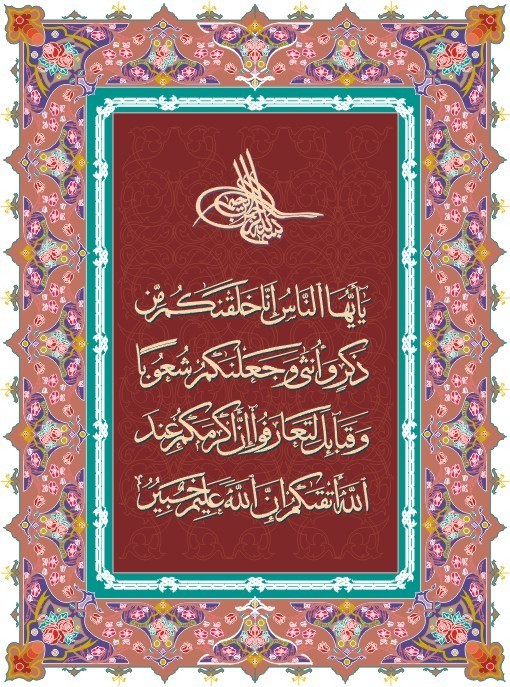 بسم الله الرحمن الرحيم
يَٰأَيُّهَا ٱلنَّاسُ إِنَّا خَلَقْنَٰكُم مِّن
ذَكَرٍ وَأُنثَىٰ وَجَعَلْنَٰكُمْ شُعُوبًا
وَقَبَائِلَ لِتَعَارَفُوا إِنَّ أَكْرَمَكُمْ عِندَ
ٱللَّهِ أَتْقَىٰكُمْ إِنَّ ٱللَّهَ عَلِيمٌ خَبِيرٌ